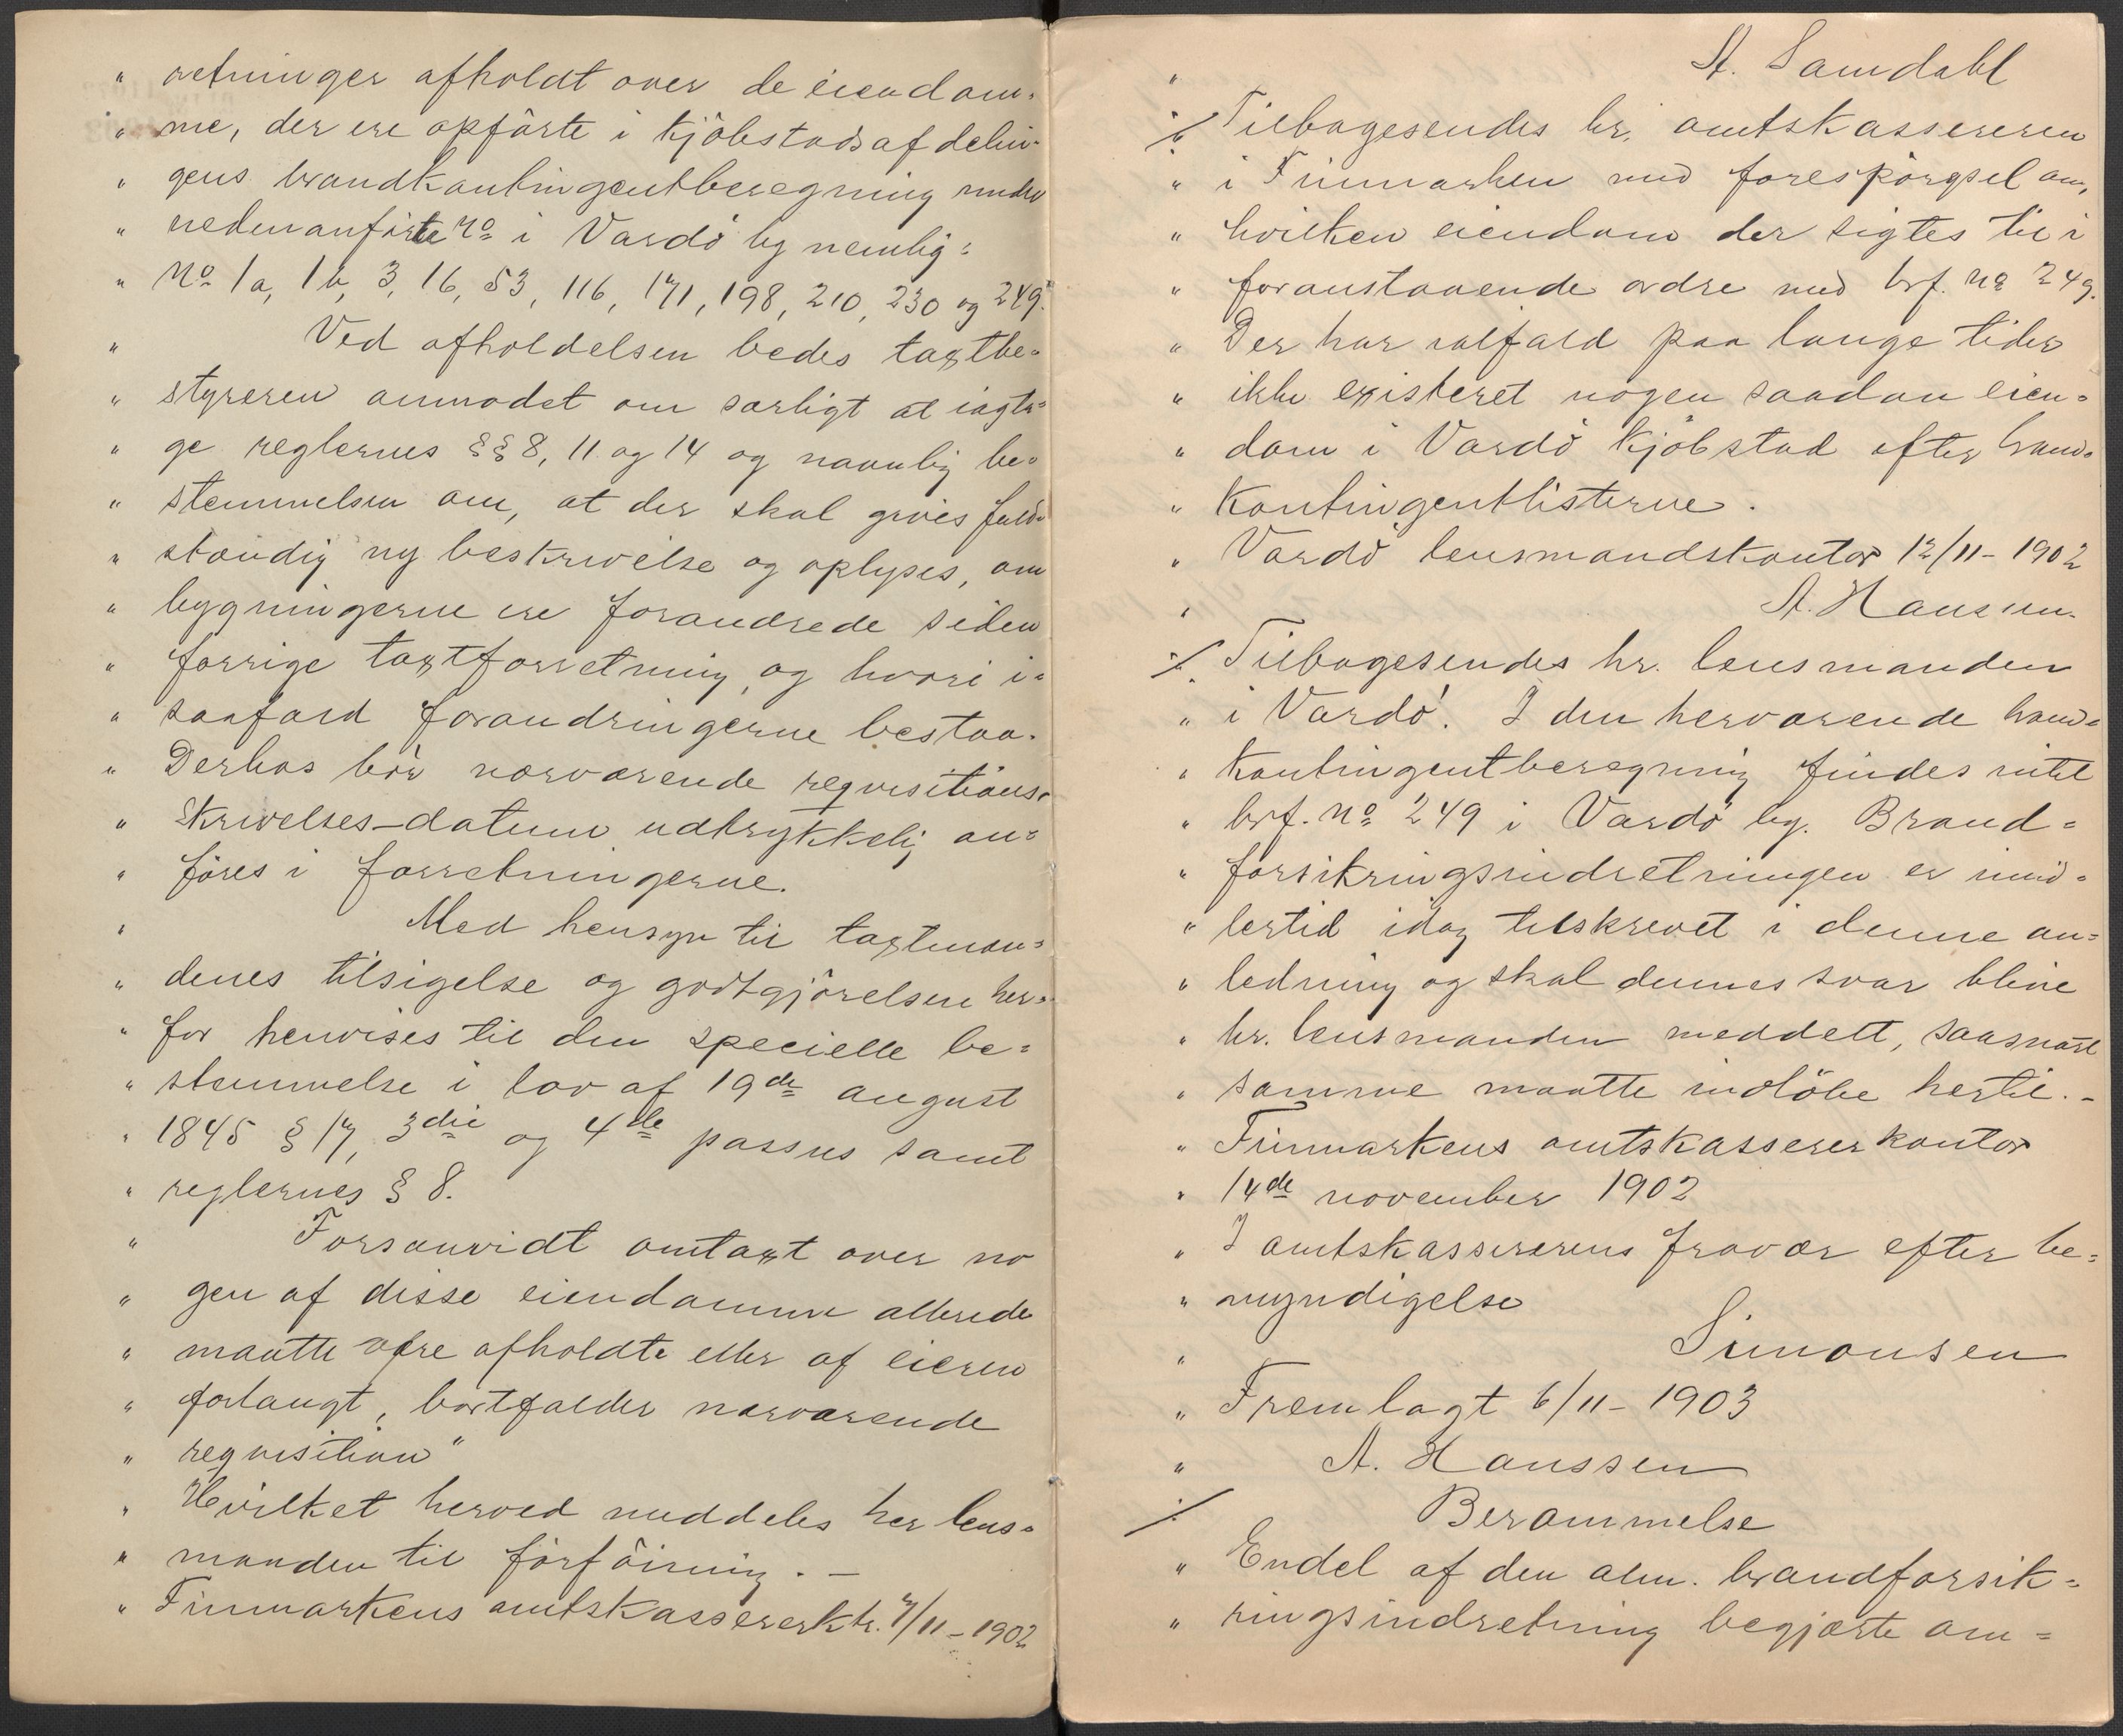 " retninger afholdt over de eiendom-
" me, der ere opførte i kjøbstadsafdelin-
" gens brandkontingentberegning under
" nedenanførte No i Vardø by nemlig:
" No 1a, 1b, 3, 16, 53, 116, 171, 198, 210, 230 og 249."
" Ved afholdelsen bedes taxtbe-
" styreren anmodet om særligt at iagtta-
" ge reglernes §§ 8, 11 og 14 og navnlig be-
" stemmelsen om, at der skal gives fuld-
" stændig ny beskrivelse og oplyses, om
" bygningerne ere forandrede siden
" forrige taxtforretning, og hvori i-
" saafald forandringerne bestaa.
" Derhos bør nærværende reqvisitions-
" skrivelses-datum udtrykkelig an-
" føres i forretningerne.
" Med hensyn til taxtmæn-
" denes tilsigelse og godtgjørelsen her-
" for henvises til den specielle be-
" stemmelse i lov af 19de august
" 1845 § 17, 3die og 4de passus samt
" reglernes § 8.
" Forsaavidt omtaxt over no
" gen af disse eiendomme allerede
" maatte være afholdt eller af eieren
" forlangt, bortfalder nærværende
" reqvisition"
" Hvilket herved meddeles her lens-
" manden til forføining. —
" Finmarkens amtskassererktr. 7/11-1902
" A. Samdahl
٪ Tilbagesendes hr. amtskassereren
" i Finmarken med forespørgsel om,
" hvilken eiendom der sigtes til i
" foranstaaende ordre med brf. No 249.
" Der har ialfald paa lange tider
" ikke existeret nogen saadan eien-
" dom i Vardø kjøbstad efter brand-
" kontingentlisterne.
" Vardø lensmandskontor 12/11-1902
" A. Hanssen.
٪ Tilbagesendes hr. lensmanden
" i Vardø. I den herværende brand-
" kontingentberegning findes intet
" brf. No 249 i Vardø by. Brand-
" forsikringsindretningen er imid-
" lertid idag tilskrevet i denne an-
" ledning og skal dennes svar blive
" hr. lensmanden meddelt, saasnart
" samme maatte indløbe hertil. -
" Finmarkens amtskassererkontor
" 14de november 1902
" I amtskassererens fravær efter be-
" myndigelse
" Simonsen
" Fremlagt 6/11-1903
" A. Hanssen
٪ Berammelse
" Endel af den alm. brandforsik-
" ringsindretning begjærte om-